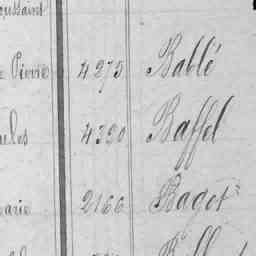 oussaint
Pierre 4275 Bablé
ules 4390 Baffel
arie 2166 Bagot